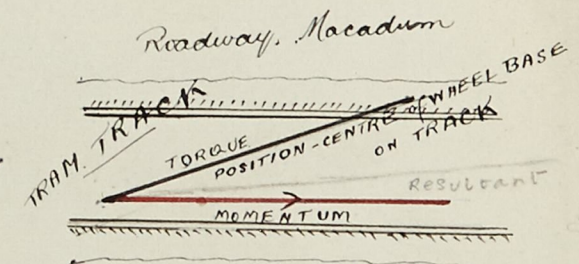 Roadway. Macadum
TRAM. TRACK
TORQUE
POSITION-CENTRE of WHEEL BASE
ON TRACK
Resultant
MOMENTUM